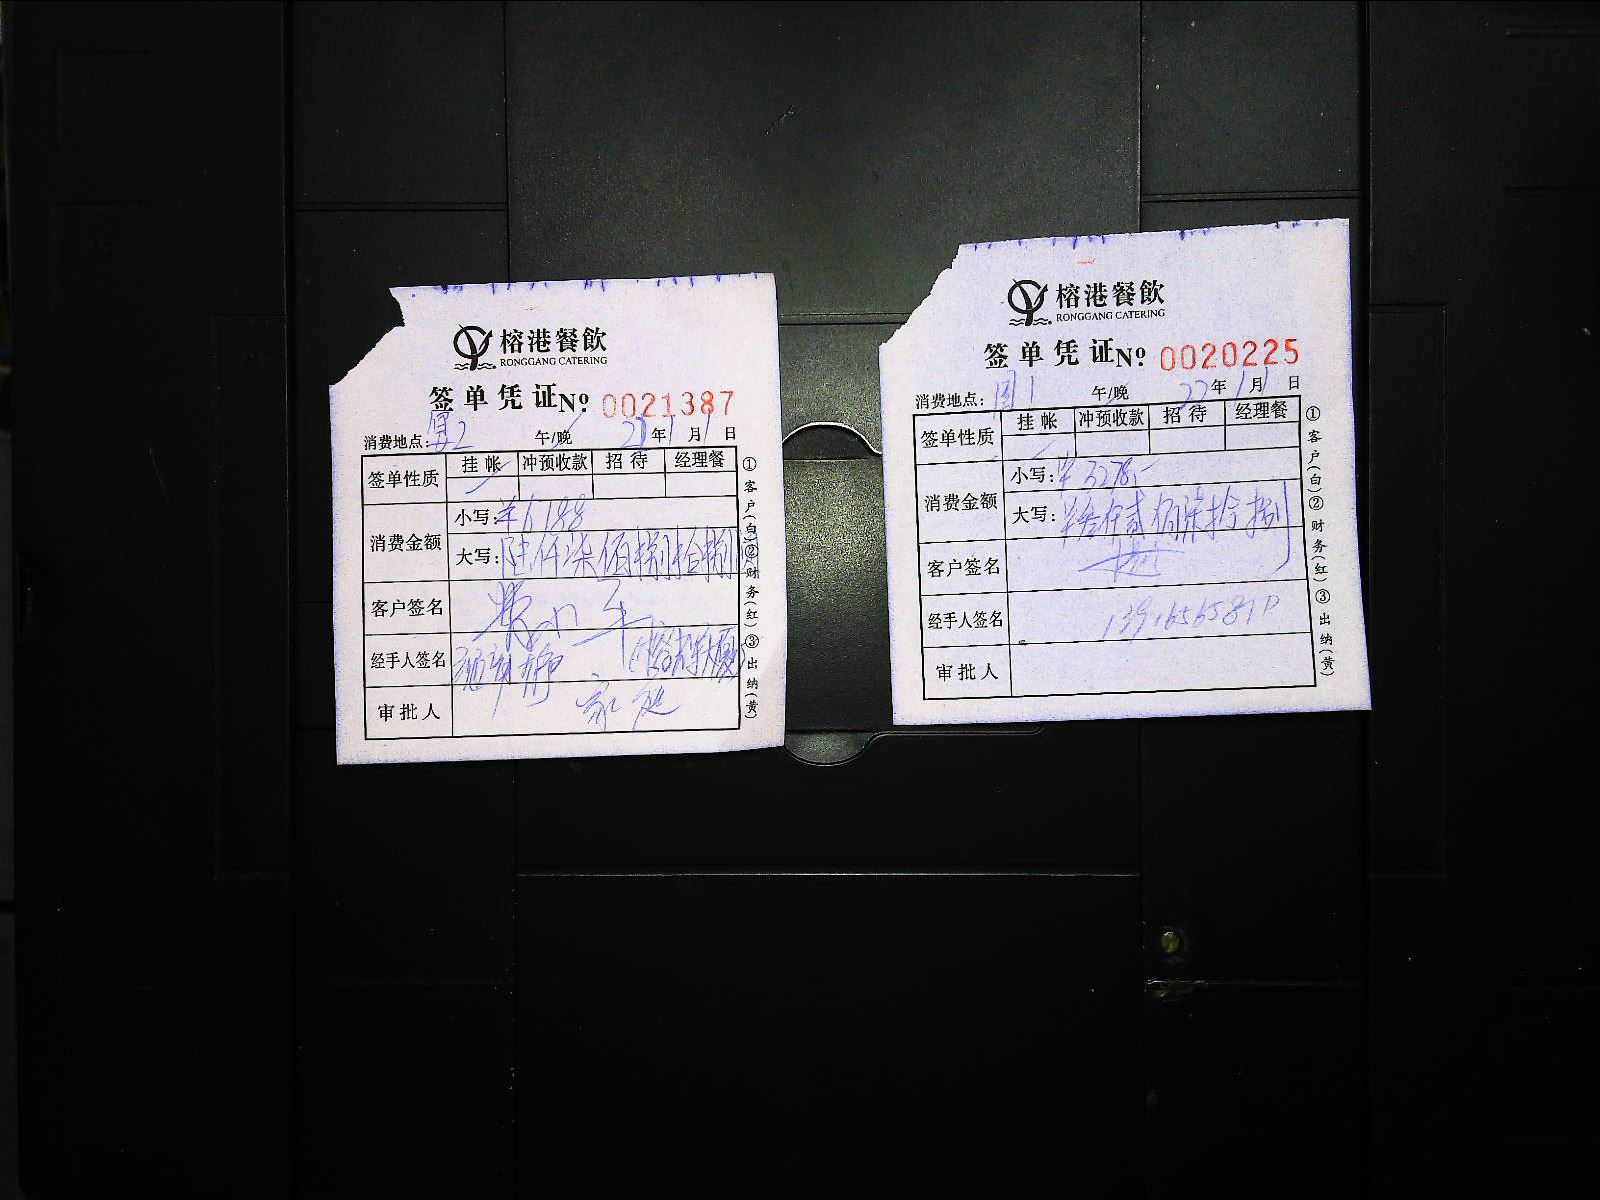 榕港餐飲
RONGGANG CATERING
签单凭证 № 0021387
消费地点: 2 午/晚 年 1 月 1 日
签单性质 挂帐 冲预收款 招待 经理餐
消费金额 小写: ¥6188
大写: 陆仟柒佰捌拾捌
客户签名
经手人签名
审批人 家庭
①客户(白)②财务(红)③出纳(黄)
榕港餐飲
RONGGANG CATERING
签单凭证 № 0020225
消费地点: 1 午/晚 22 年 1 月 1 日
签单性质 挂帐 冲预收款 招待 经理餐
消费金额 小写: ¥3278.-
大写: ¥叁仟贰佰柒拾捌
客户签名
经手人签名
审批人
①客户(白)②财务(红)③出纳(黄)